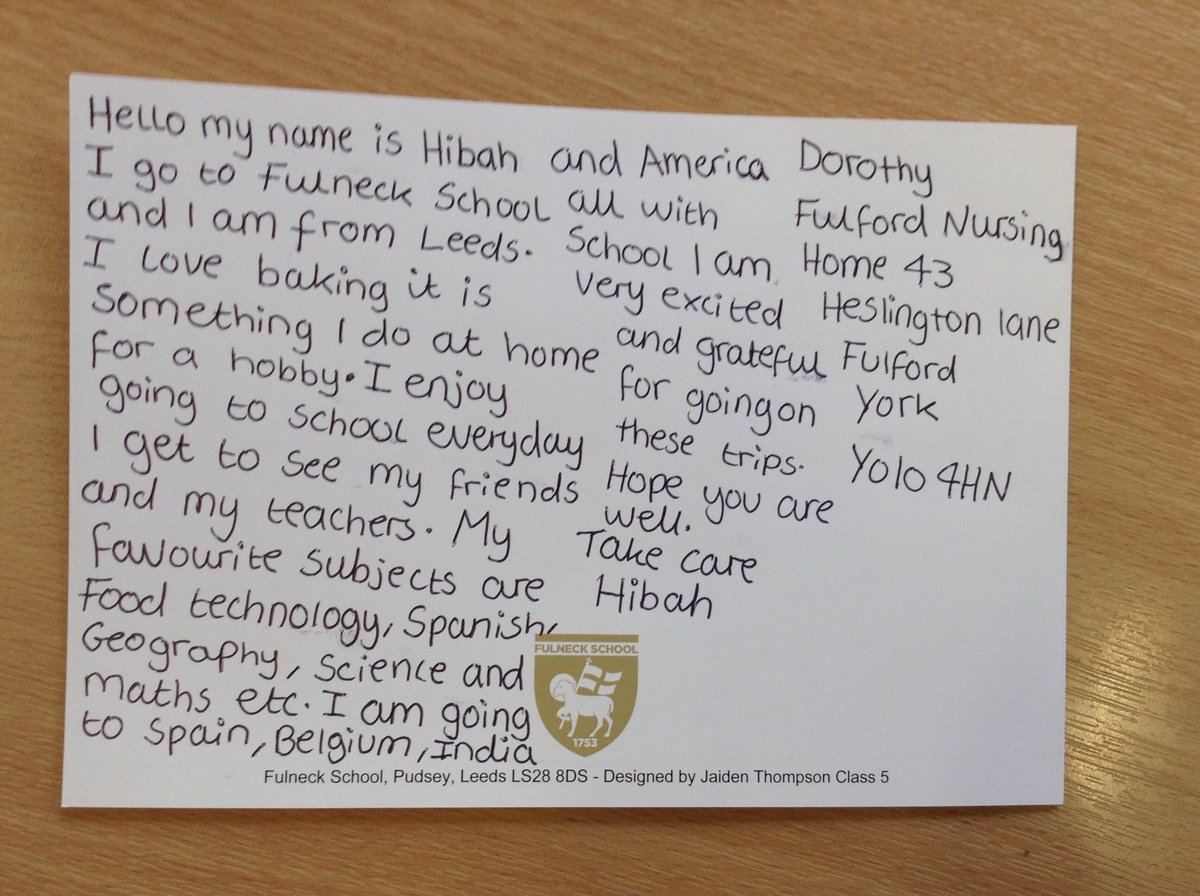 Hello my name is Hibah
I go to Fulneck School
and I am from Leeds.
I love baking it is
something I do at home
for a hobby. I enjoy
going to school everyday
I get to see my friends
and my teachers. My
favourite subjects are
Food technology, Spanish,
Geography, Science and
maths etc. I am going
to Spain, Belgium, India
and America
all with
School I am
very excited
and grateful
for going on
these trips.
Hope you are
well.
Take care
Hibah
Dorothy
Fulford Nursing
Home 43
Heslington lane
Fulford
York
Yo10 4HN
FULNECK SCHOOL
1753
Fulneck School, Pudsey, Leeds LS28 8DS - Designed by Jaiden Thompson Class 5